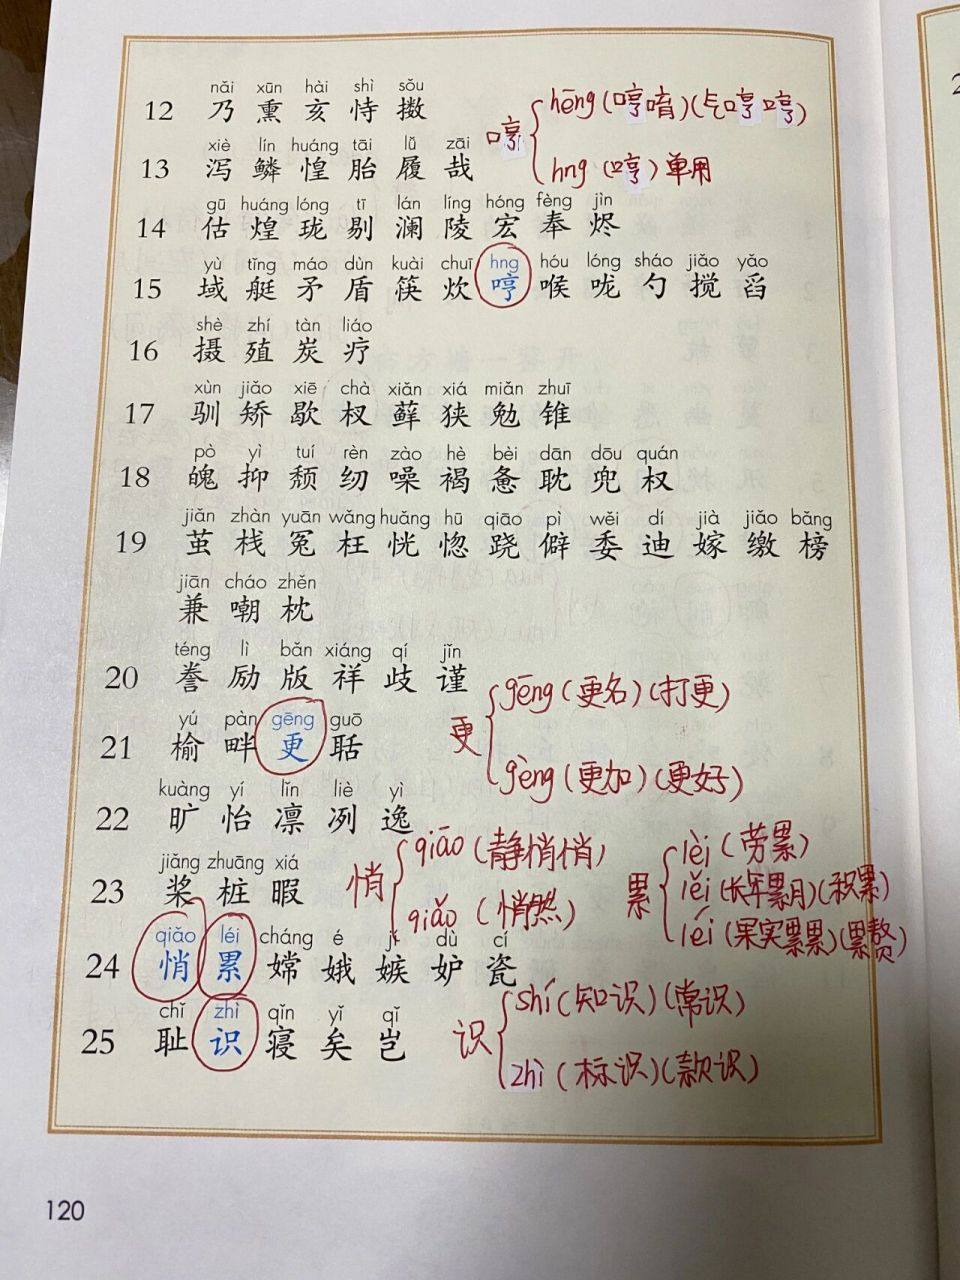 nǎi xūn hài shì sǒu
12 乃 熏 亥 恃 擞
xiè lín huáng tāi lǚ zāi
13 泻 鳞 惶 胎 履 哉
gū huáng lóng tī lán líng hóng fèng jìn
14 估 煌 珑 剔 澜 陵 宏 奉 烬
yù tǐng máo dùn kuài chuī hng hóu lóng sháo jiǎo yǎo
15 域 艇 矛 盾 筷 炊 哼 喉 咙 勺 搅 舀
shè zhí tàn liáo
16 摄 殖 炭 疗
xùn jiǎo xiē chà xiǎn xiá miǎn zhuī
17 驯 矫 歇 杈 藓 狭 勉 锥
pò yì tuí rèn zào hè bèi dān dōu quán
18 魄 抑 颓 纫 噪 褐 惫 耽 兜 权
jiǎn zhàn yuān wǎng huǎng hū qiāo pì wěi dí jià jiǎo bǎng
19 茧 栈 冤 枉 恍 惚 跷 僻 委 迪 嫁 缴 榜
jiān cháo zhěn
兼 嘲 枕
téng lì bǎn xiáng qí jǐn
20 誊 励 版 祥 歧 谨
yú pàn gēng guō
21 榆 畔 更 聒
kuàng yí lǐn liè yì
22 旷 怡 凛 冽 逸
jiǎng zhuāng xiá
23 桨 桩 暇
qiǎo léi cháng é jí dù cí
24 悄 累 嫦 娥 嫉 妒 瓷
chǐ zhì qǐn yǐ qǐ
25 耻 识 寝 矣 岂
哼
hēng(哼唷)(气哼哼)
hng(哼)单用
更
gēng(更名)(打更)
gèng(更加)(更好)
悄
qiāo(静悄悄)
qiǎo(悄然)
累
lèi(劳累)
lěi(长年累月)(积累)
léi(果实累累)(累赘)
识
shí(知识)(常识)
zhì(标识)(款识)
120